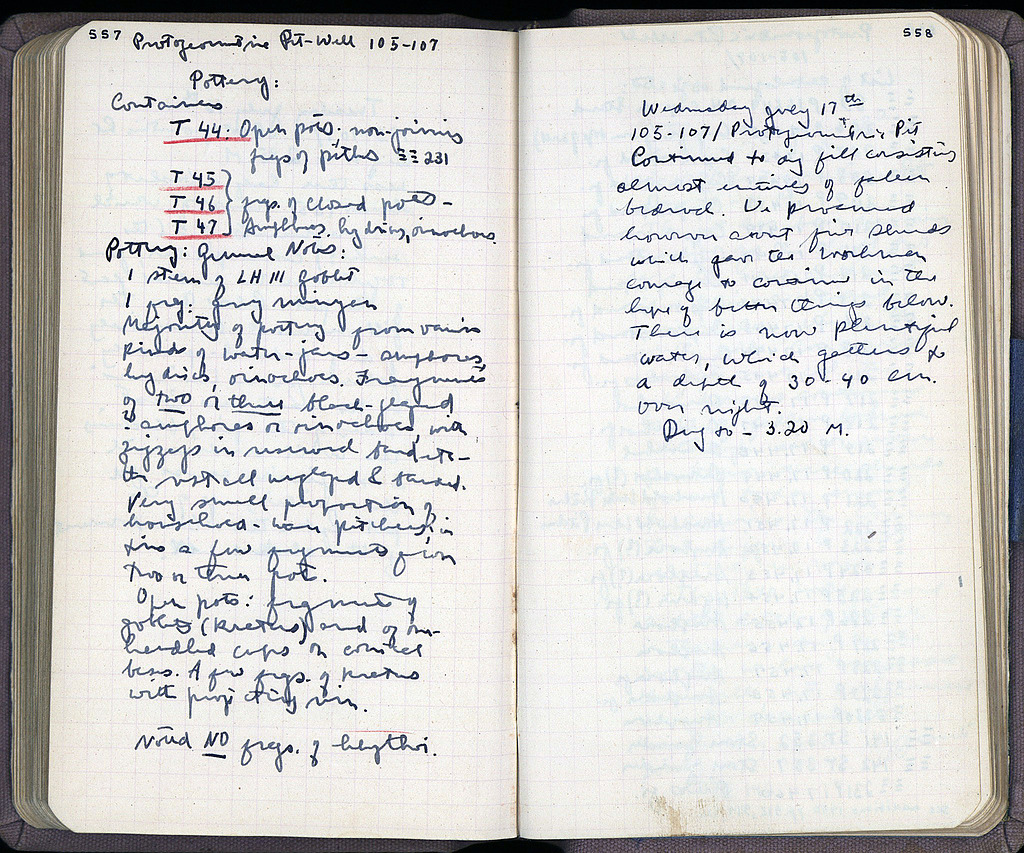 557 Protogeometric Pit-Well 105-107
Pottery:
Containers
T 44. Open pots; non-joining
frgs of pithos ΞΞ 231
T 45
T 46 frgs. of closed pots -
T 47 Amphoras, hydrias, oinochoes.
Pottery: General Notes:
1 stem of LH III goblet
1 frg. Gray minyan
Majority of pottery from various
kinds of water-jars - amphoras,
hydrias, oinochoes. Fragments
of two or three black-glazed
amphoras or oinochoes, with
zigzags in reserved bands -
the rest all unglazed & banded.
Very small proportion of
household ware pitchers; in
this a few fragments from
two or three pots.
Open pots: fragments of
goblets (Kraters) and of one-
handled cups on conical
bases. A few frgs. of kraters
with projecting rim.
Noted NO frgs. of lekythoi.
558
Wednesday July 17th
105-107/ Protogeometric Pit
Continued to dig fill consisting
almost entirely of fallen
bedrock. We procured
however about five sherds
which gave the workmen
courage to continue in the
hope of better things below.
There is now plentiful
water, which gathers to
a depth of 30-40 cm.
over night.
Dug to - 3.20 M.